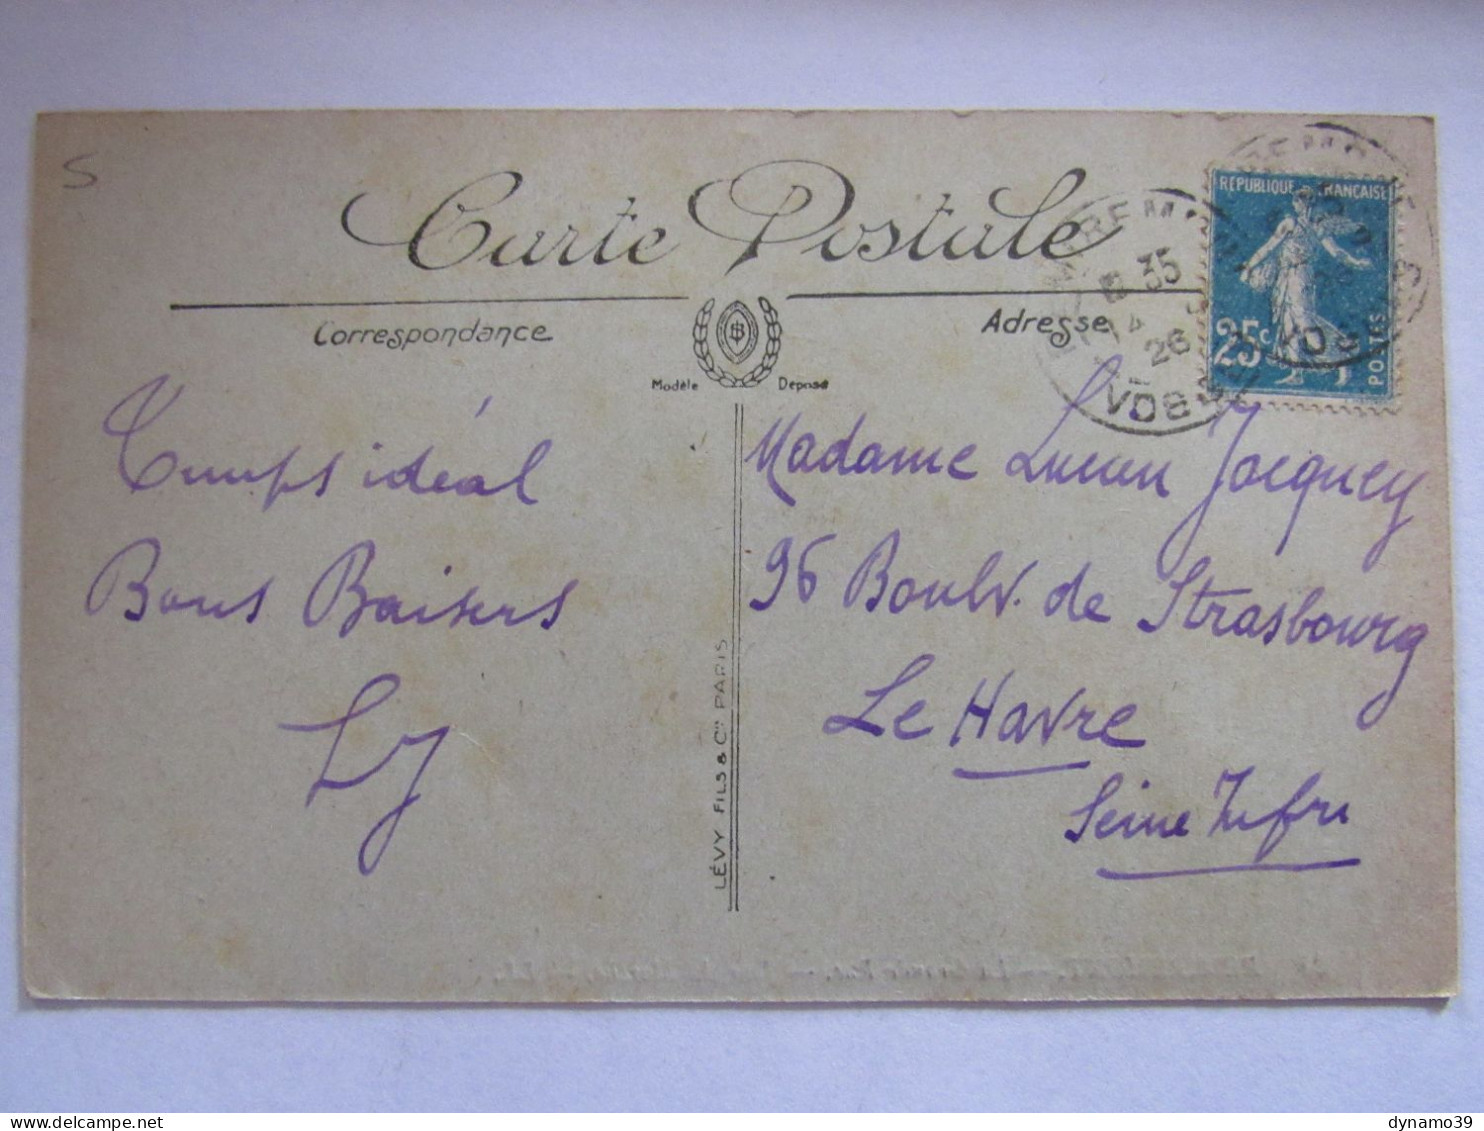 S
Carte Postale
Correspondance
Adresse
Modèle Déposé
RÉPUBLIQUE FRANÇAISE
25c
POSTES
35
26
VOSGES
Temps idéal
Bons Baisers
LJ
Madame Lucien Jacquey
96 Boulv. de Strasbourg
Le Havre
Seine Infre
LÉVY FILS & Cie PARIS
dynamo39